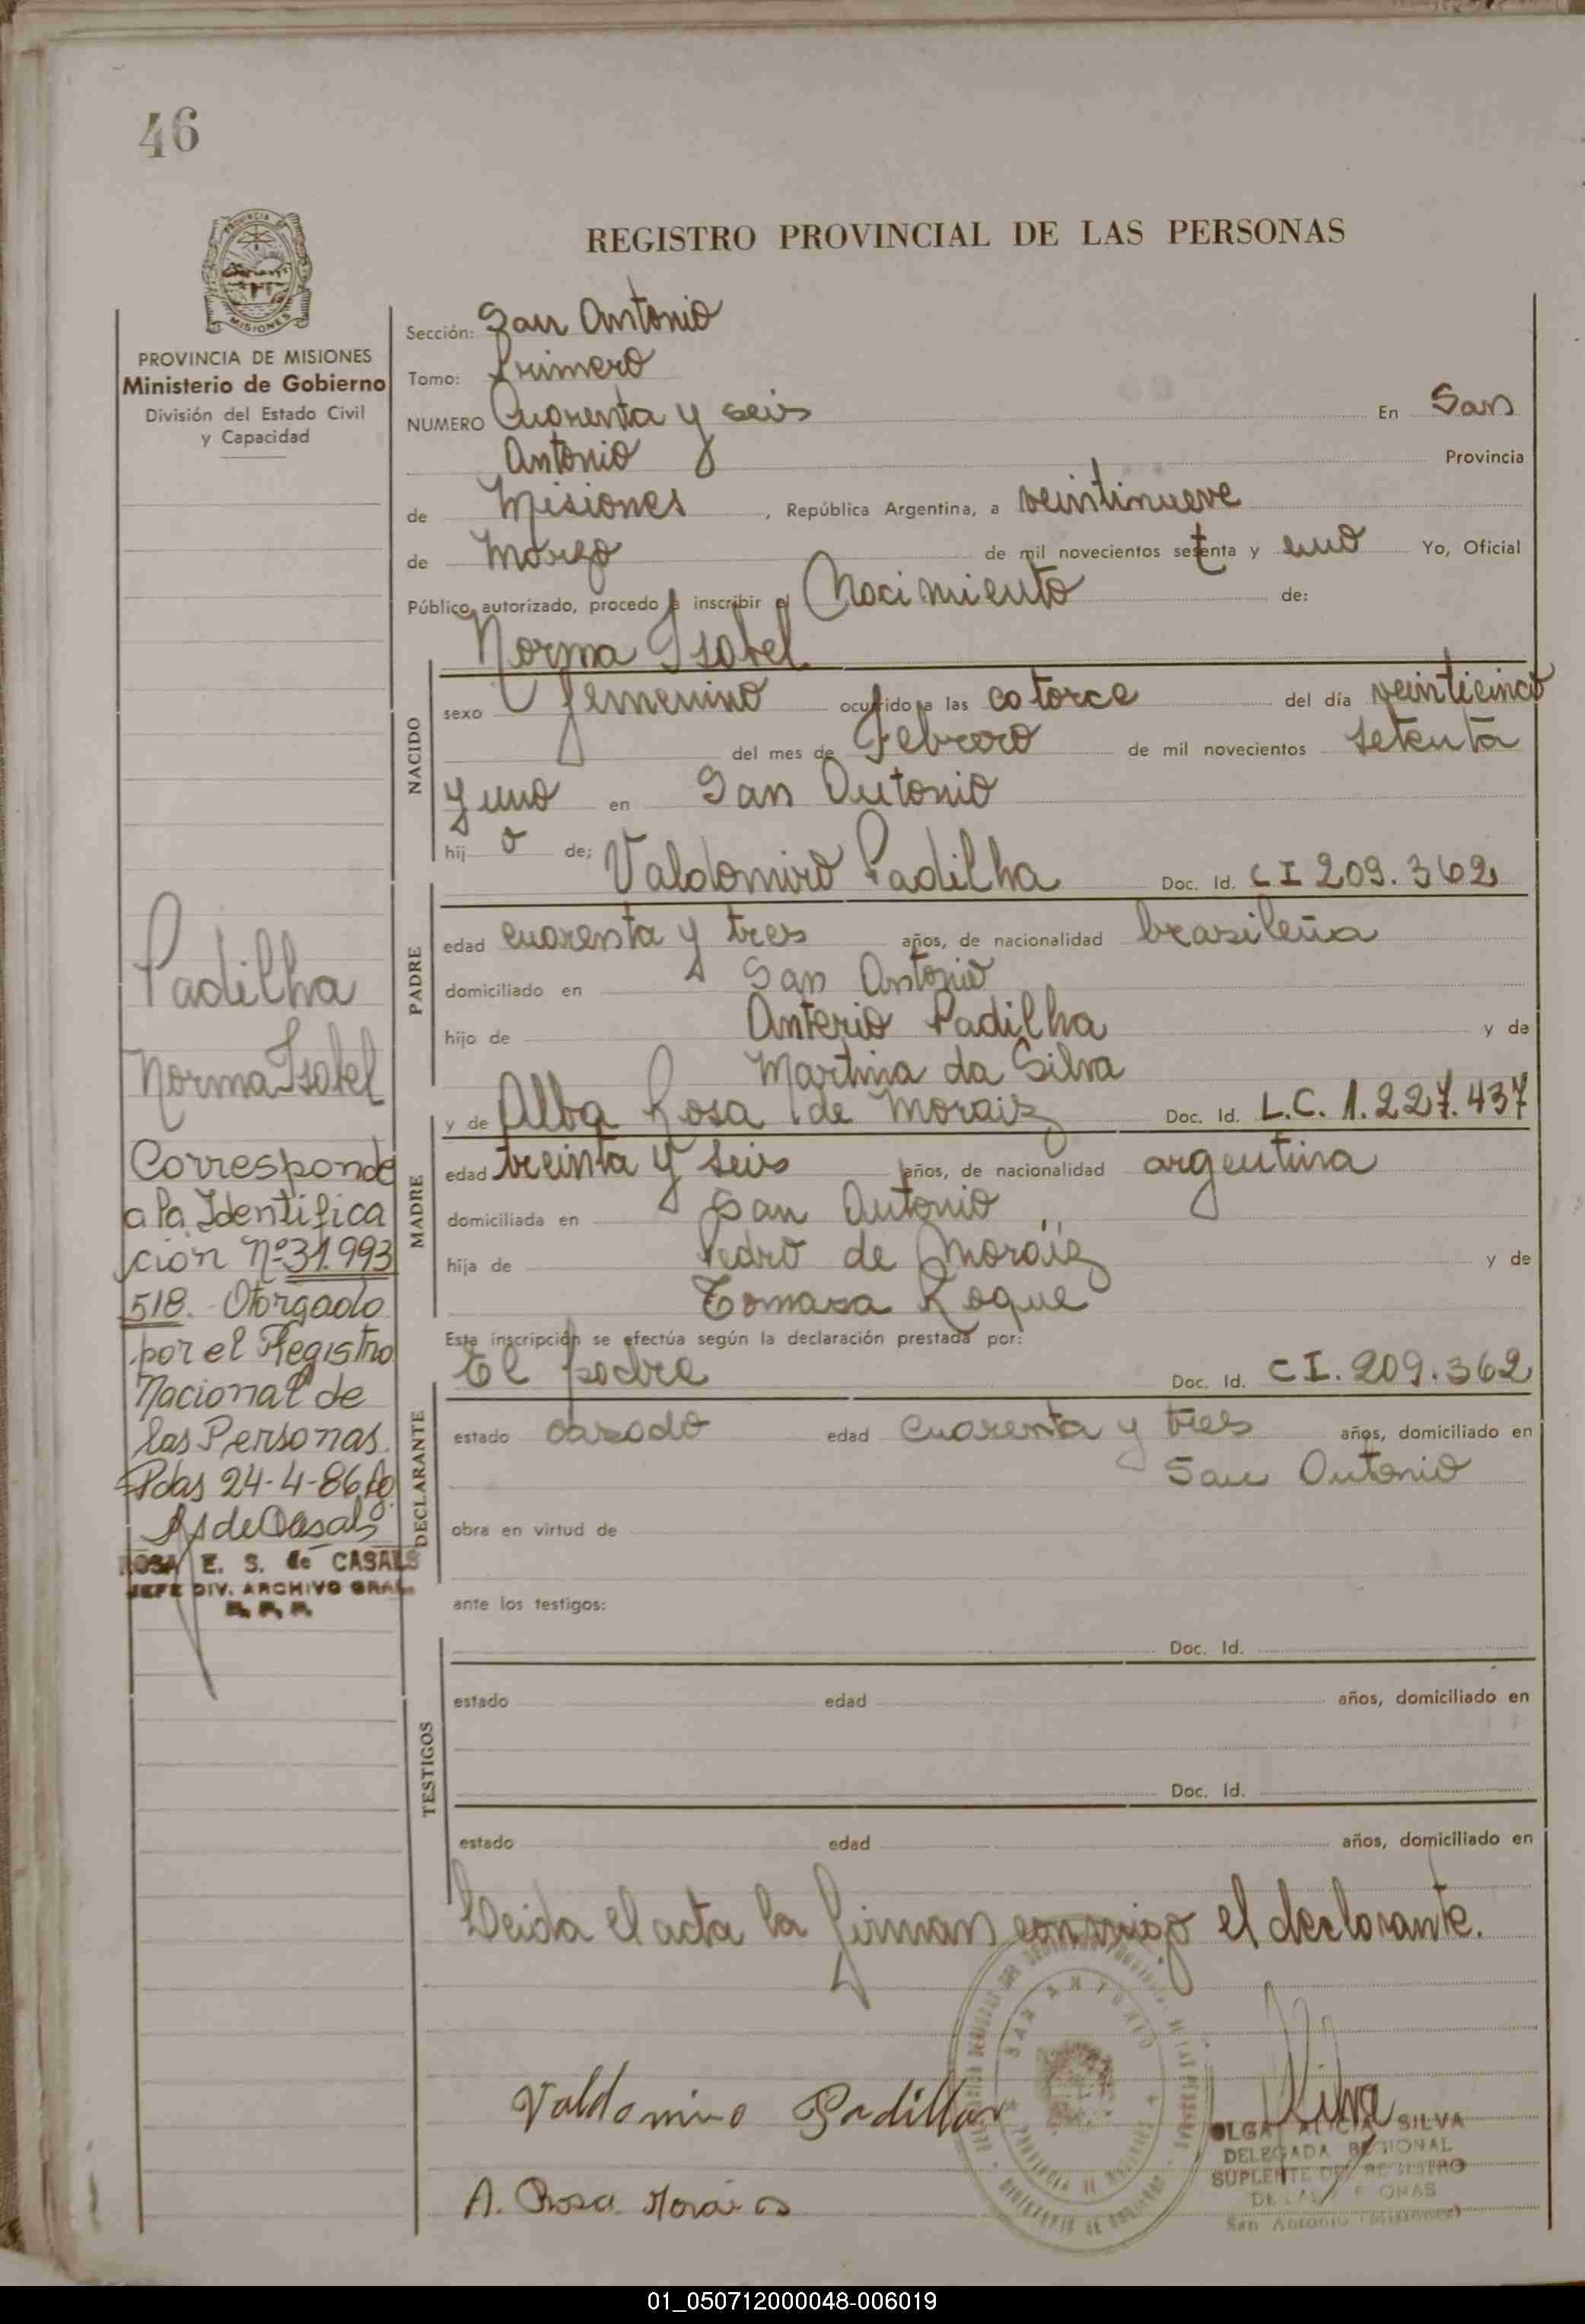 46
REGISTRO PROVINCIAL DE LAS PERSONAS
PROVINCIA DE MISIONES
MISIONES
PROVINCIA DE MISIONES
Ministerio de Gobierno
División del Estado Civil
y Capacidad
Sección: San Antonio
Tomo: Primero
NUMERO Cuarenta y seis En San
Antonio Provincia
de Misiones, República Argentina, a veintinueve
de Marzo de mil novecientos setenta y uno Yo, Oficial
Público autorizado, procedo a inscribir el Nacimiento de:
Norma Isabel
NACIDO
sexo femenino ocurrido a las catorce del día veinticinco
del mes de Febrero de mil novecientos setenta
y uno en San Antonio
hij a de; Valdomiro Padilha Doc. Id. CI 209.362
PADRE
edad cuarenta y tres años, de nacionalidad brasileña
domiciliado en San Antonio
hijo de Anterio Padilha y de
Martina da Silva
y de Alba Rosa de Moraiz Doc. Id. L.C. 1.227.437
MADRE
edad treinta y seis años, de nacionalidad argentina
domiciliada en San Antonio
hija de Pedro de Moraiz y de
Tomasa Roque
Esta inscripción se efectúa según la declaración prestada por:
El padre Doc. Id. C.I. 209.362
DECLARANTE
estado casado edad cuarenta y tres años, domiciliado en
San Antonio
obra en virtud de
ante los testigos:
Doc. Id.
TESTIGOS
estado edad años, domiciliado en
Doc. Id.
estado edad años, domiciliado en
Leida el acta la firman conmigo el declarante.
Padilha
Norma Isabel
Corresponde
a la Identifica
ción Nº 31.993
518. Otorgado
por el Registro
Nacional de
las Personas.
Pdas 24-4-86
ROSA E. S. de CASALS
JEFE DIV. ARCHIVO GRAL.
R. P. P.
Valdomiro Padilha
A. Rosa Morais
SAN ANTONIO
PROVINCIA DE MISIONES
MINISTERIO DE GOBIERNO
Silva
OLGA ALICIA SILVA
DELEGADA REGIONAL
SUPLENTE DEL REGISTRO
DE LAS PERSONAS
San Antonio (Misiones)
01_050712000048-006019